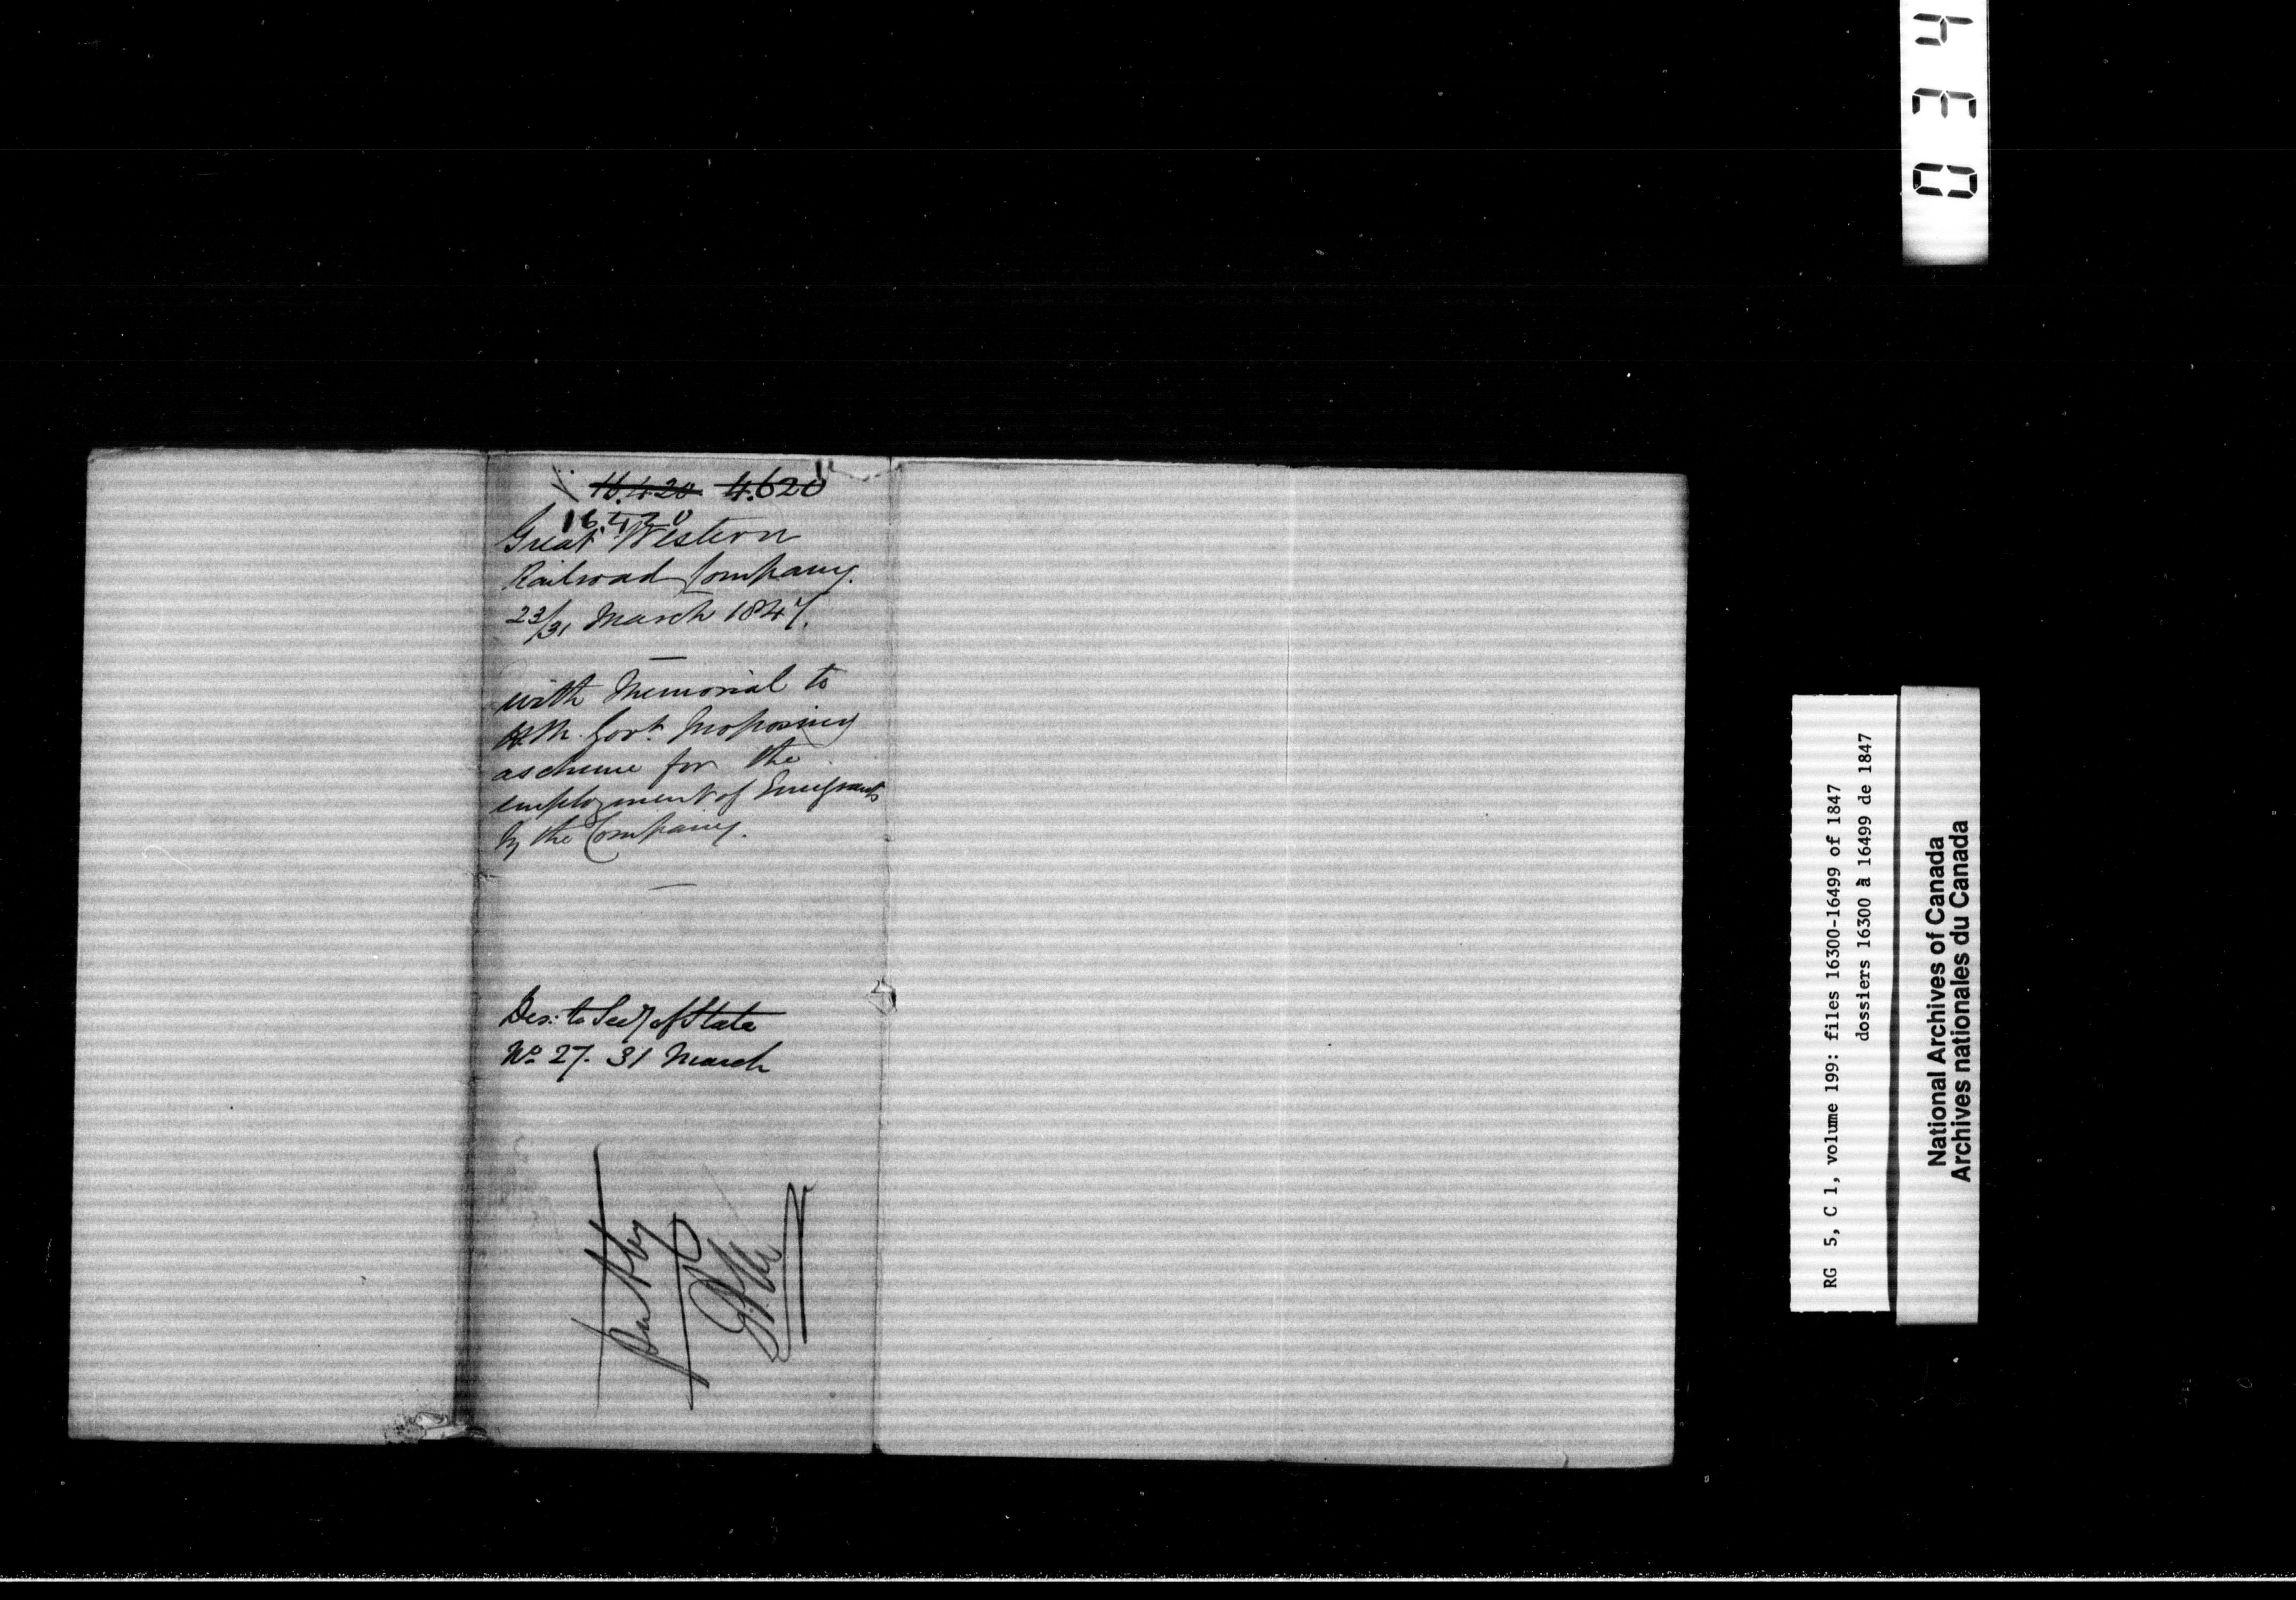 16.420 4.620
16.420
Great Western
Railroad Company.
23/31 March 1847.
with Memorial to
H.M. Govt. proposing
a scheme for the
employment of Emigrants
by the Company.
Des: to Secy of State
No 27. 31 March
Put by
034
RG 5, C 1, volume 199: files 16300-16499 of 1847
dossiers 16300 à 16499 de 1847
National Archives of Canada
Archives nationales du Canada